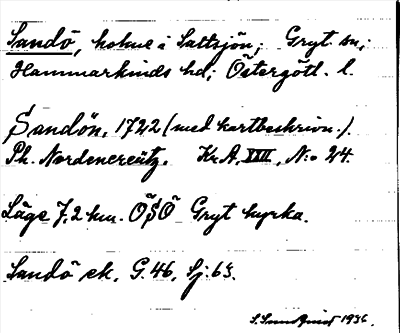 Sandö, holme i Saltsjön; Gryt sn;
Hammarkinds hd; Östergötl. l.
Sandön, 1722 (med kartbeskrivn.).
Ph. Nordencreütz. Kr.A, XVIII, N:o 24.
Läge 7,2 km. ÖSÖ Gryt kyrka.
Sandö ek. G. 46, Sj: 63.
S. Sundquist 1936.